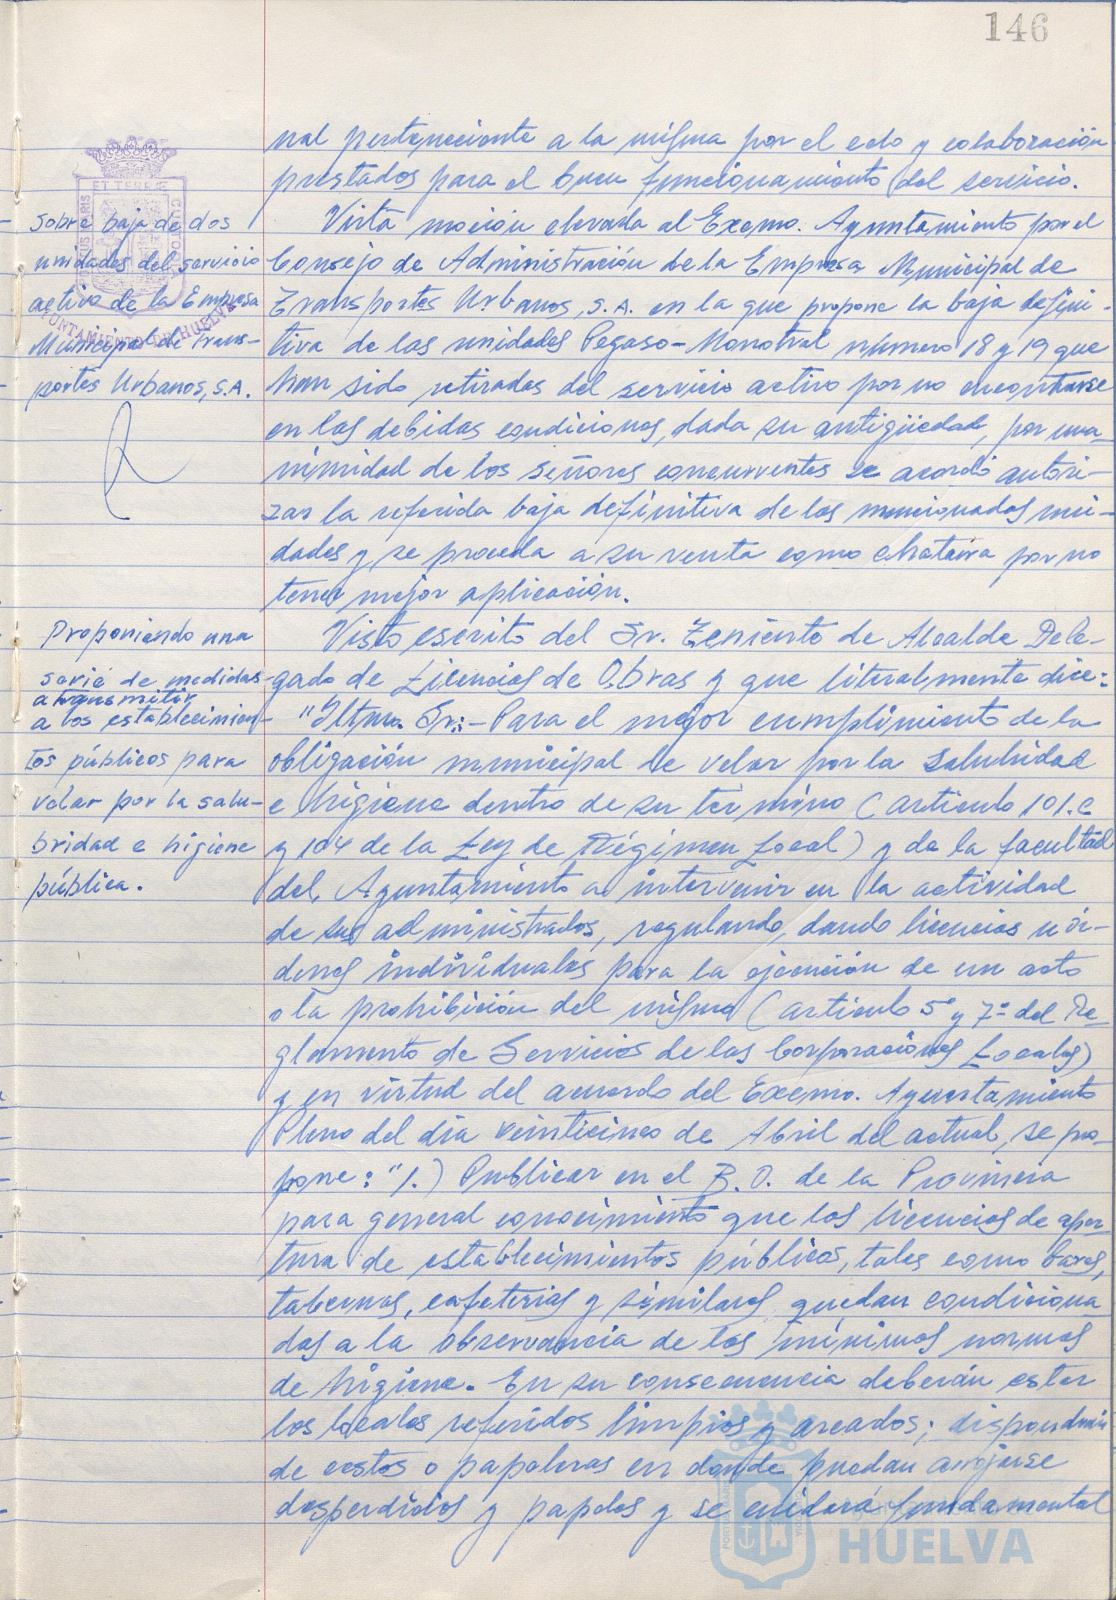 146
nal perteneciente a la misma por el celo y colaboración
prestados para el buen funcionamiento del servicio.
Sobre baja de dos
unidades del servicio
activo de la Empresa
Municipal de Trans-
portes Urbanos, S.A.
Vista moción elevada al Excmo. Ayuntamiento por el
Consejo de Administración de la Empresa Municipal de
Transportes Urbanos, S.A. en la que propone la baja defini-
tiva de las unidades Pegaso-Monotral número 18 y 19 que
han sido retiradas del servicio activo por no encontrarse
en las debidas condiciones, dada su antigüedad, por una-
nimidad de los señores concurrentes se acordó autori-
zar la referida baja definitiva de las mencionadas uni-
dades y se proceda a su venta como chatarra por no
tener mejor aplicación.
Proponiendo una
serie de medidas
a transmitir
a los establecimien-
tos públicos para
velar por la salu-
bridad e higiene
pública.
Visto escrito del Sr. Teniente de Alcalde Dele-
gado de Licencias de Obras y que literalmente dice:
"Iltmo. Sr.:- Para el mejor cumplimiento de la
obligación municipal de velar por la salubridad
e higiene dentro de su término (artículo 101.c
y 104 de la Ley de Régimen Local) y de la facultad
del Ayuntamiento a intervenir en la actividad
de sus administrados, regulando, dando licencias u ór-
denes individuales para la ejecución de un acto
o la prohibición del mismo (artículo 5º y 7º del Re-
glamento de Servicios de las Corporaciones Locales)
y en virtud del acuerdo del Excmo. Ayuntamiento
Pleno del día veinticinco de Abril del actual, se pro-
pone: "1.) Publicar en el B.O. de la Provincia
para general conocimiento que las licencias de aper-
tura de establecimientos públicos, tales como bares,
tabernas, cafeterías y similares, quedan condiciona
das a la observancia de las mínimas normas
de higiene. En su consecuencia deberán estar
los locales referidos limpios y aseados; dispondrán
de cestos o papeleras en donde puedan arrojarse
desperdicios y papeles y se cuidará fundamental
AYUNTAMIENTO DE HUELVA
HUELVA